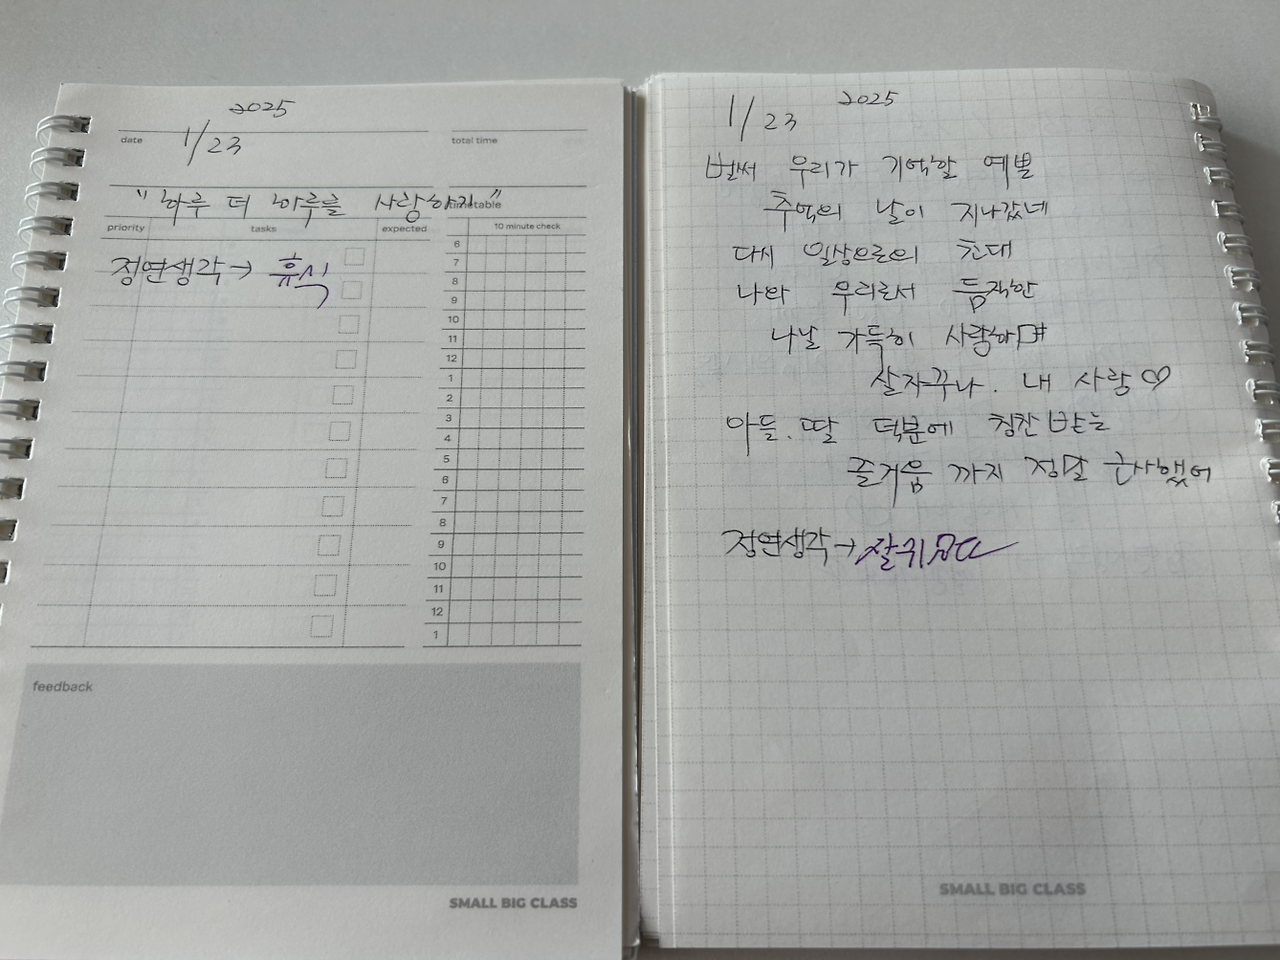 2025
date 1/23
total time
"하루 더 하루를 사랑하기"
timetable
priority tasks expected
10 minute check
정연생각→ 휴식
6
7
8
9
10
11
12
1
2
3
4
5
6
7
8
9
10
11
12
1
feedback
SMALL BIG CLASS
2025
1/23
벌써 우리가 기억할 예쁠
추억의 날이 지나갔네
다시 일상으로의 초대
나와 우리로서 듬직한
나날 가득히 사랑하며
살자꾸나. 내 사랑♡
아들. 딸 덕분에 칭찬 받는
즐거움 까지 정말 근사했어
정연생각→
SMALL BIG CLASS